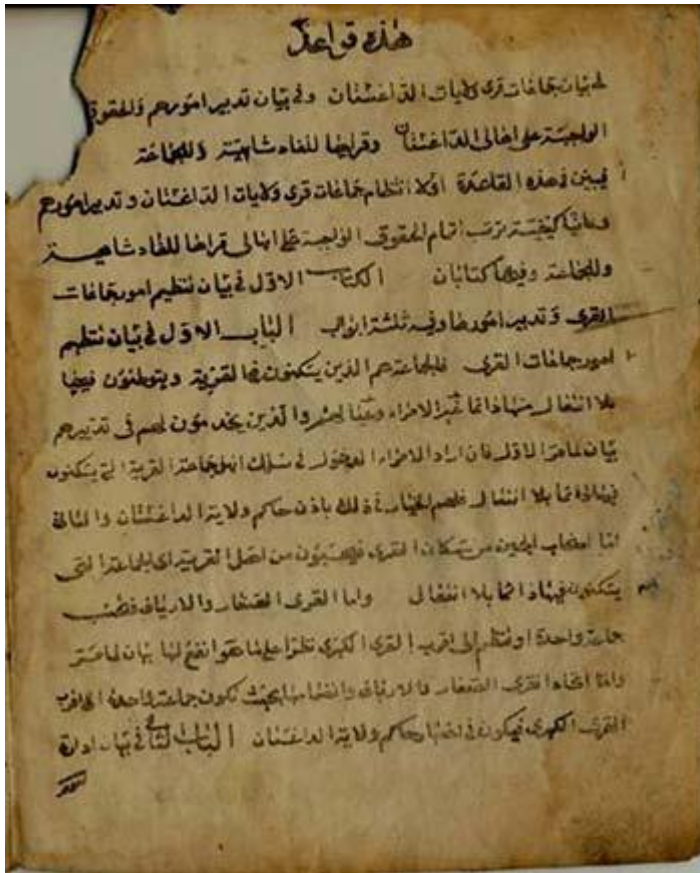 هذه قواعد
في بيان جماعات قرى ولايات الداغستان وفي بيان تدبير امورهم والحقوق
الواجبة على اهالى الداغستان وقراها للفادشاهية وللجماعة
فيبين في هذه القاعدة اولا انتظام جماعات قرى ولايات الداغستان وتدبير امورهم
وثانيا كيفية ترتب اتمام الحقوق الواجبة على اهالى قراها للفادشاهية
وللجماعة وفيها كتابان الكتاب الاول في بيان تنظيم امور جماعات
القرى وتدبير امورها وفيه ثلثة ابواب الباب الاول في بيان تنظيم
امور جماعات القرى فالجماعة هم الذين يسكنون في القرية ويتوطنون فيها
بلا انتقال منها دائما غير الامراء والذين يخدمون لهم في تدبيرهم
بيان لما مر الاول فان اراد الامراء الدخول في سلك اهل جماعة القرية التي يسكنون
فيها دائما بلا انتقال فلهم الخيار في ذلك باذن حاكم ولاية الداغستان والثانى
من سكان القرى فيحسبون من اهل القرية اى الجماعة التى
يسكنون فيها دائما بلا انتقال واما القرى الصغار والارياف
جماعة واحدة او تنظم الى اقرب القرى الكبرى نظرا على ما هو انفع لها بيان لما مر
واما اتحاد القرى الصغار والارياف وانضمامها بحيث تكون جماعة واحدة الى اقرب
القرى الكبرى فيكون في اختيار حاكم ولاية الداغستان الباب الثانى في بيان ادارة